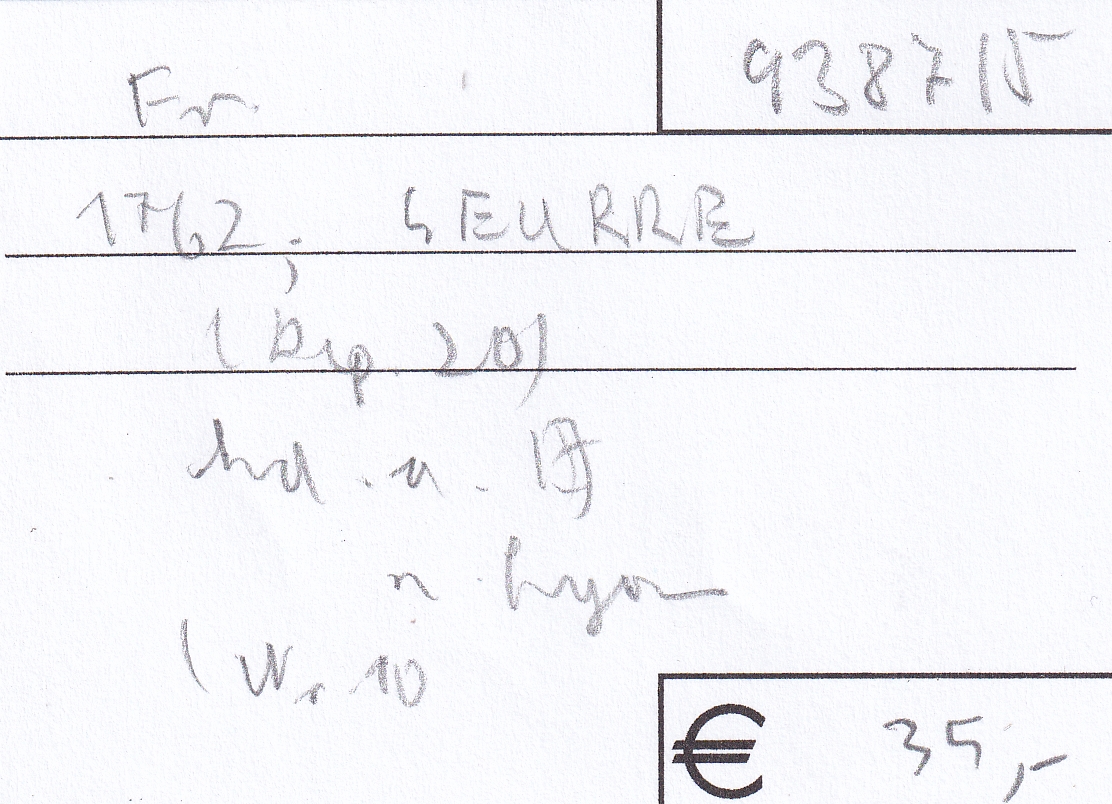 Fr. 938715
1762, SEURRE
(Dep. 20)
hd. a.
n. Lyon
(W. 10
€ 35,-